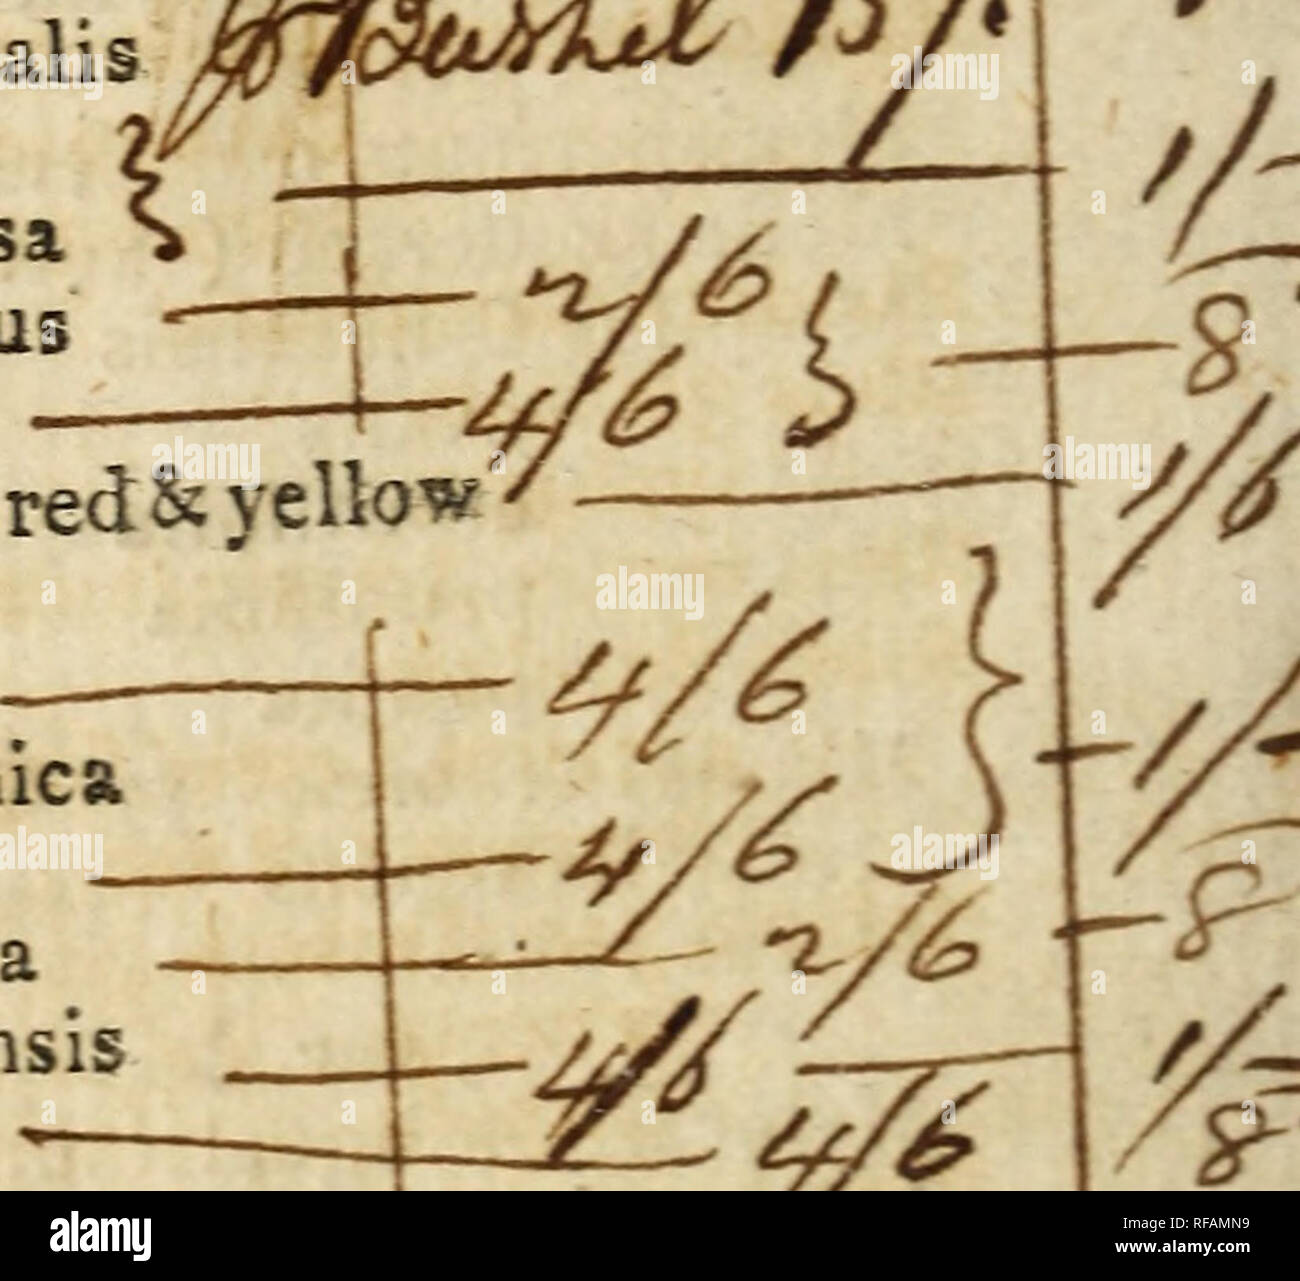 alis Bushel 15/.
1/-
sa
us 2/6
8
4/6
red & yellow 1/6
4/6
1/-
ica
4/6
8
a 2/6
nsis 4/6 1/-
4/6 8
alamy
Image ID: RFAMN9
www.alamy.com